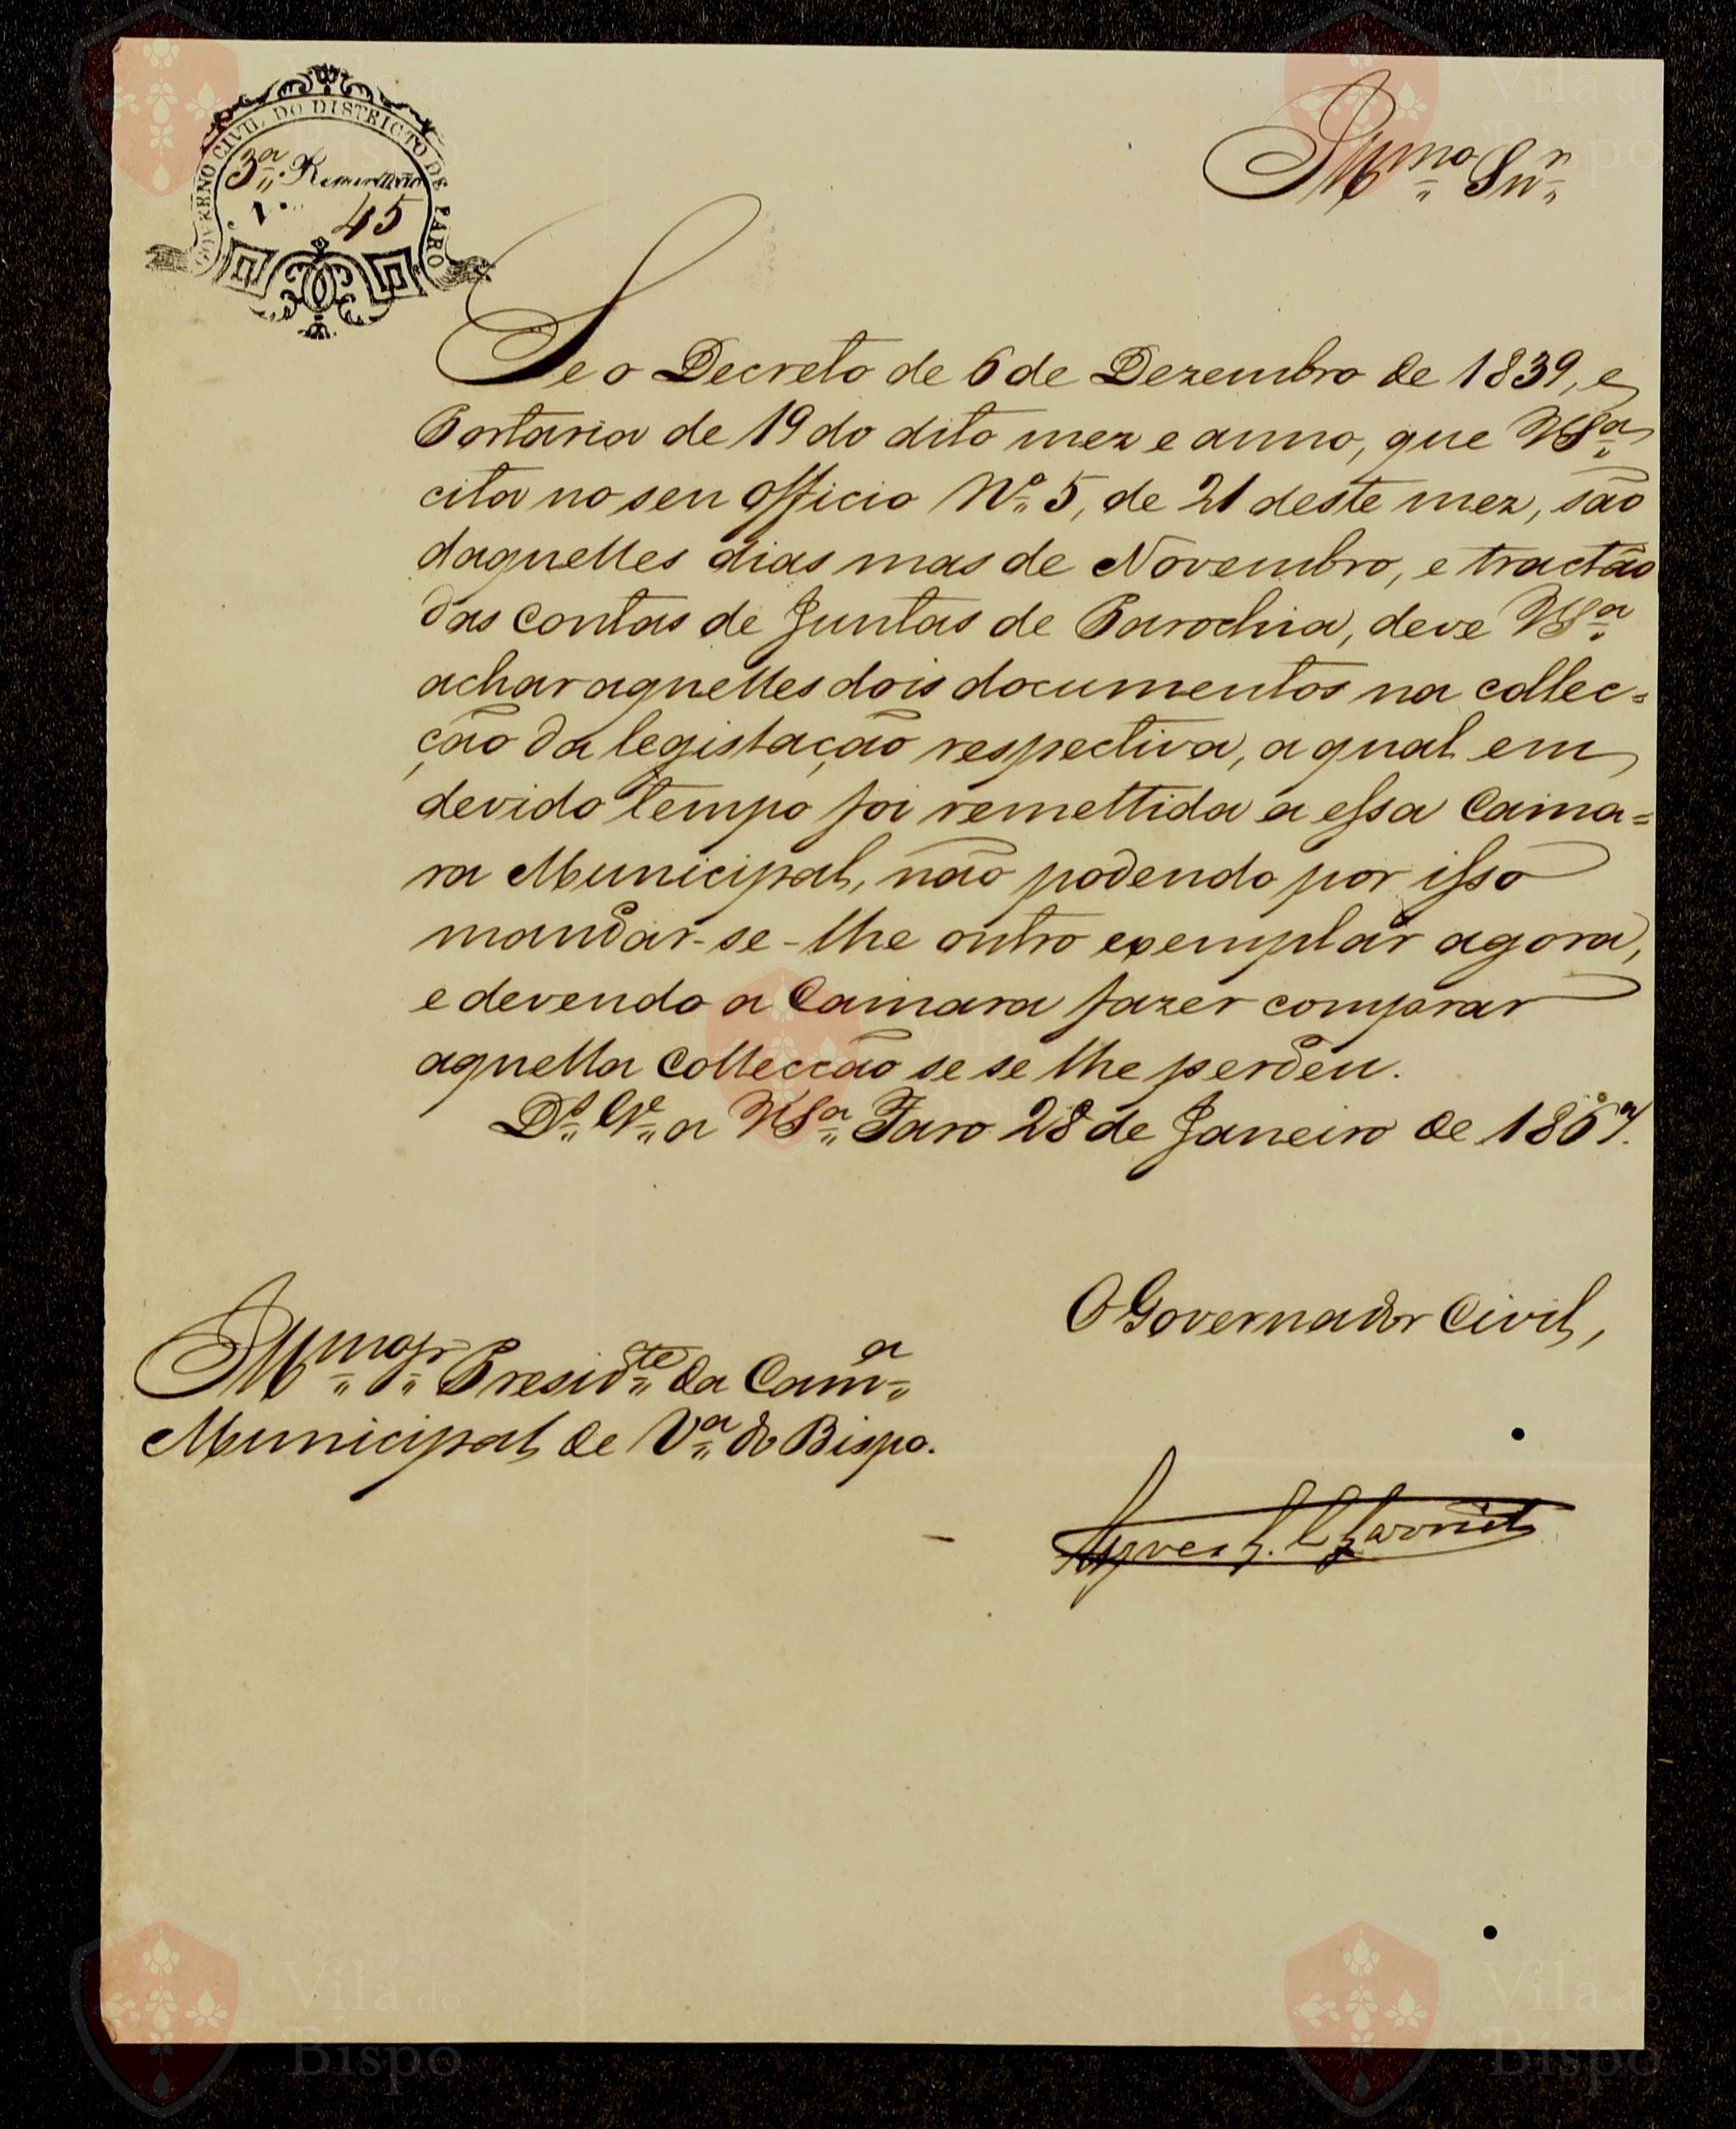 GOVERNO CIVIL DO DISTRICTO DE FARO
3.ª Repartição
N.º 45
Illmo Snr
Se o Decreto de 6 de Dezembro de 1839, e
Portaria de 19 do dito mez e anno, que VSª
cita no seu officio Nº 5, de 21 deste mez, são
daquelles dias mas de Novembro, e tractão
das contas de Juntas de Parochia, deve VSª
achar aquelles dois documentos na collec=
ção da legislação respectiva, a qual em
devido tempo foi remettida a essa Cama=
ra Municipal, não podendo por isso
mandar-se-lhe outro exemplar agora,
e devendo a Camara fazer comprar
aquella collecção se se lhe perdeu.
Ds Ge a VSª Faro 28 de Janeiro de 1867.
O Governador Civil,
Illmo Sr Presidte da Camª
Municipal de Vª do Bispo.
Vila do
Bispo